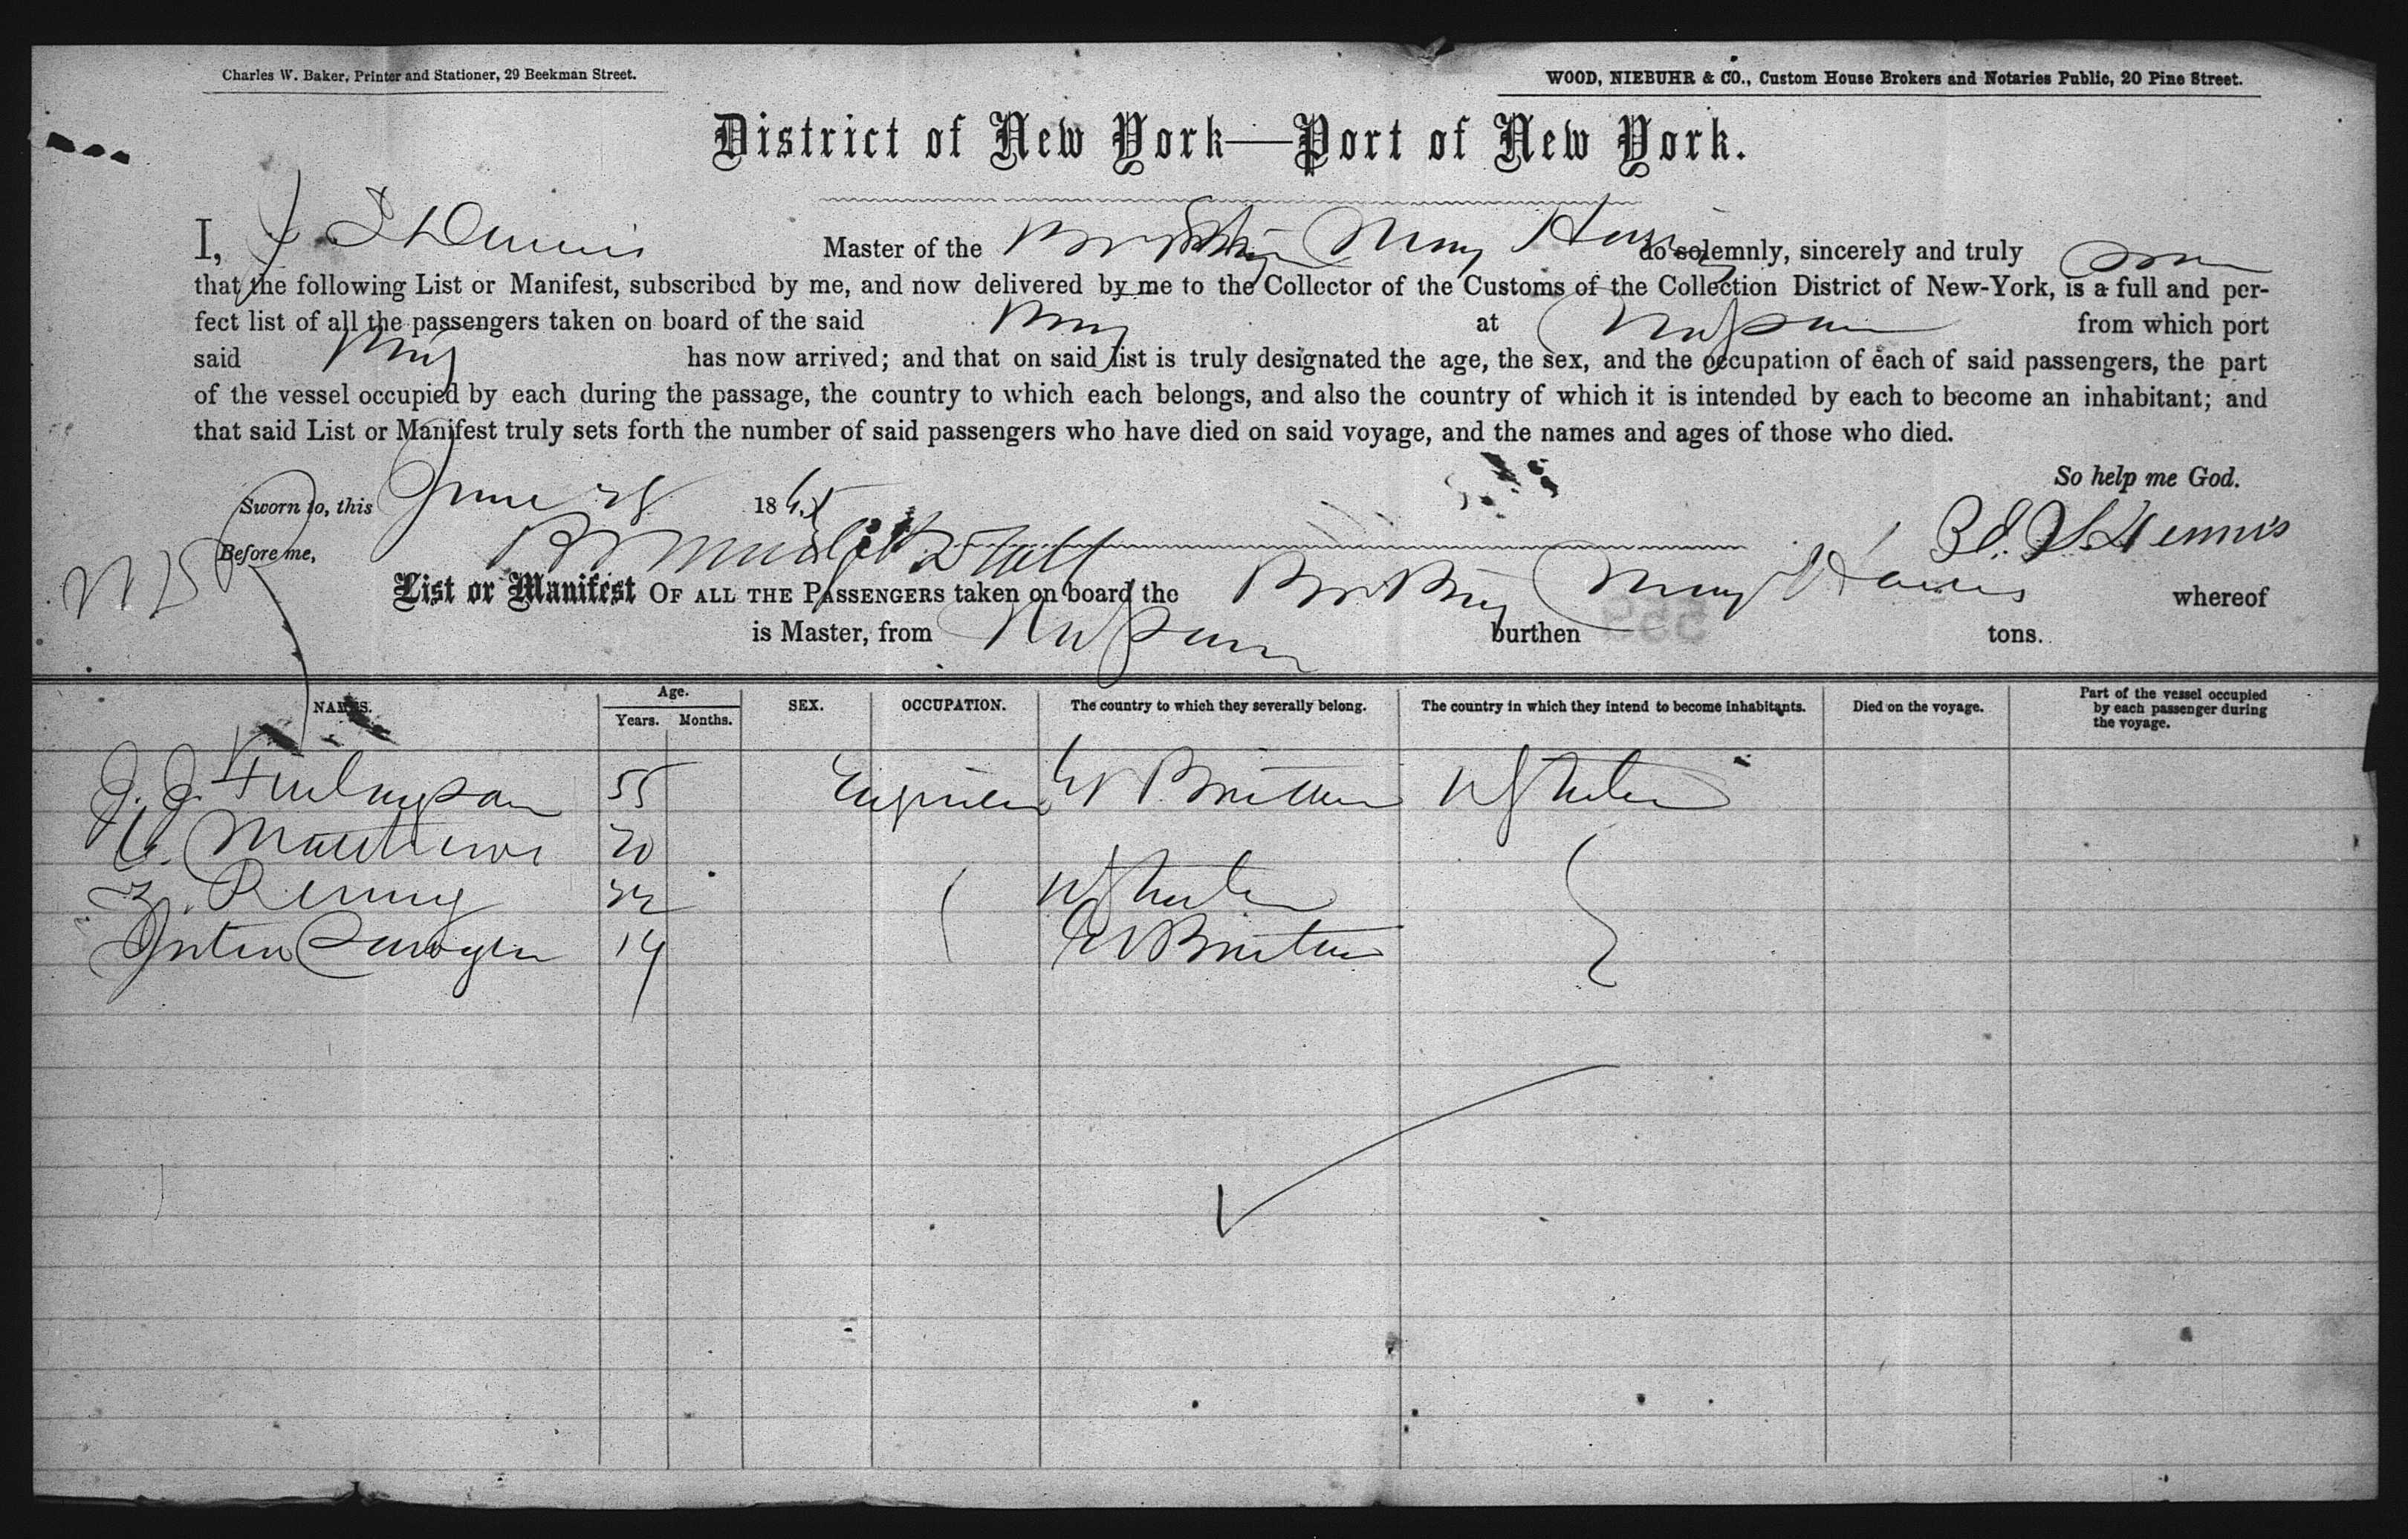 Charles W. Baker, Printer and Stationer, 29 Beekman Street.
WOOD, NIEBUHR & CO., Custom House Brokers and Notaries Public, 20 Pine Street.
District of New York—Port of New York.
I, Master of the Br Brig Mary do solemnly, sincerely and truly
that the following List or Manifest, subscribed by me, and now delivered by me to the Collector of the Customs of the Collection District of New-York, is a full and per-
fect list of all the passengers taken on board of the said Brig at from which port
said Brig has now arrived; and that on said list is truly designated the age, the sex, and the occupation of each of said passengers, the part
of the vessel occupied by each during the passage, the country to which each belongs, and also the country of which it is intended by each to become an inhabitant; and
that said List or Manifest truly sets forth the number of said passengers who have died on said voyage, and the names and ages of those who died.
So help me God.
Sworn to, this June 28 1865
Before me,
List or Manifest OF ALL THE PASSENGERS taken on board the Br Brig Mary whereof
is Master, from burthen tons.
NAMES. Age. Years. Months. SEX. OCCUPATION. The country to which they severally belong. The country in which they intend to become inhabitants. Died on the voyage. Part of the vessel occupied by each passenger during the voyage.
J. J. Finlayson 55 Engineer G Britain U States
Matthews 20
22 U States
14 G Britain